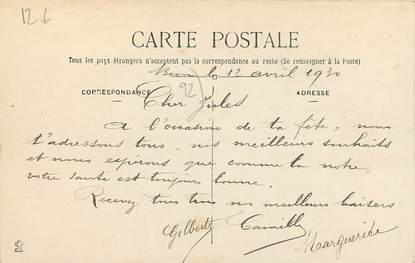 12 €
CARTE POSTALE
Tous les pays étrangers n'acceptent pas la correspondance au recto (Se renseigner à la Poste)
le 12 avril 1930
CORRESPONDANCE
92
ADRESSE
Cher Jules
A l'occasion de ta fête, nous
t'adressons tous, nos meilleurs souhaits
et nous espérons que comme la notre,
votre santé est toujours bonne.
Recevez tous nos meilleurs baisers
Gilberte Camille
Marguerite